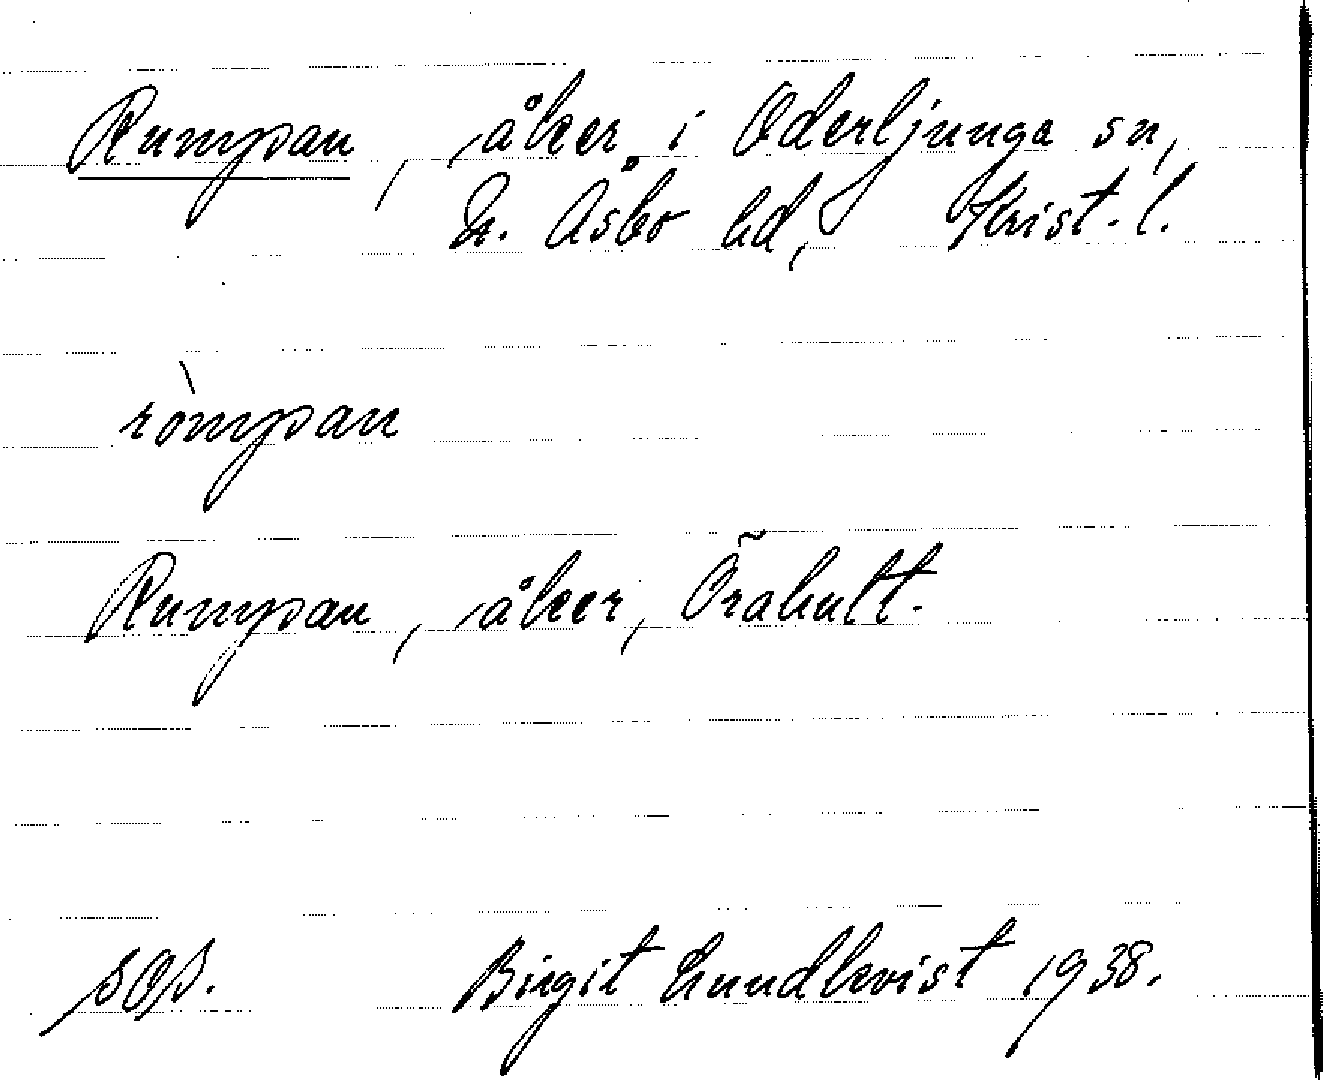 Rumpan, åker i Oderljunga sn,
N. Åsbo hd, Krist. l.
ròmpan
Rumpan, åker, Örahult.
SOS. Birgit Lundkvist 1938.